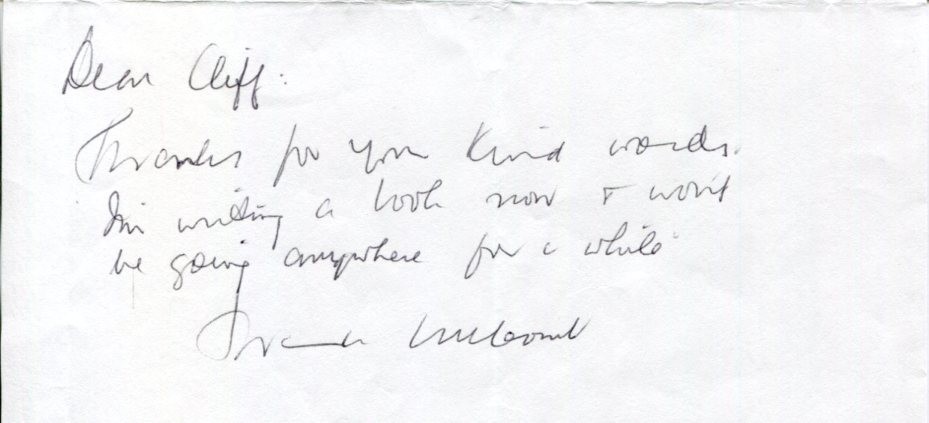 Dear Cliff:
Thanks for your kind words.
I'm writing a book now + won't
be going anywhere for a while
Frank McCourt